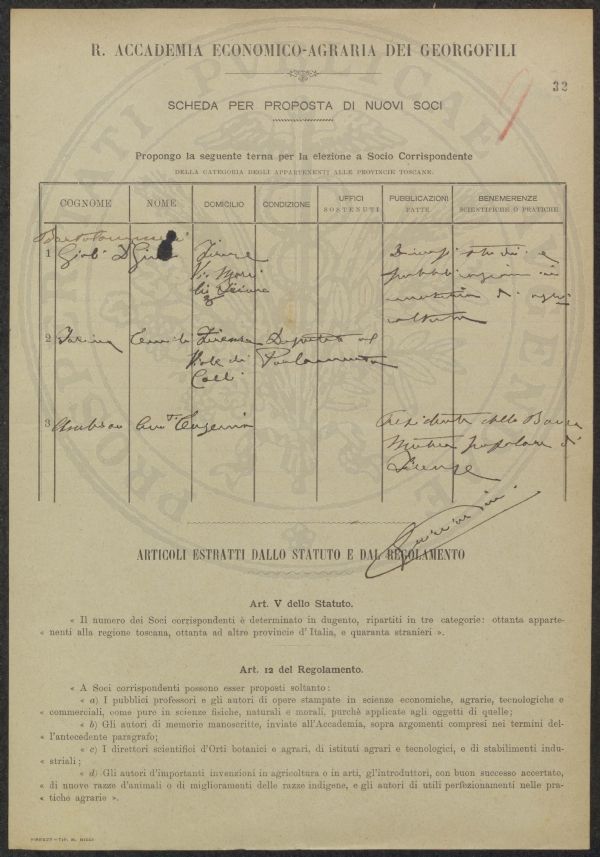 R. ACCADEMIA ECONOMICO-AGRARIA DEI GEORGOFILI
32
SCHEDA PER PROPOSTA DI NUOVI SOCI
Propongo la seguente terna per la elezione a Socio Corrispondente
DELLA CATEGORIA DEGLI APPARTENENTI ALLE PROVINCIE TOSCANE.
COGNOME NOME DOMICILIO CONDIZIONE UFFICI SOSTENUTI PUBBLICAZIONI FATTE BENEMERENZE SCIENTIFICHE O PRATICHE
1 Firenze
studi e
pubblicazioni in
materia di agri
coltura
2 Farina Emilio Firenze Deputato al
Viale dei Parlamento
Colli
3 Eugenio Presidente della Banca
Mutua popolare di
Firenze
ARTICOLI ESTRATTI DALLO STATUTO E DAL REGOLAMENTO
Art. V dello Statuto.
« Il numero dei Soci corrispondenti è determinato in dugento, ripartiti in tre categorie: ottanta apparte-
« nenti alla regione toscana, ottanta ad altre provincie d'Italia, e quaranta stranieri ».
Art. 12 del Regolamento.
« A Soci corrispondenti possono esser proposti soltanto:
« a) I pubblici professori e gli autori di opere stampate in scienze economiche, agrarie, tecnologiche e
« commerciali, come pure in scienze fisiche, naturali e morali, purchè applicate agli oggetti di quelle;
« b) Gli autori di memorie manoscritte, inviate all'Accademia, sopra argomenti compresi nei termini del-
« l'antecedente paragrafo;
« c) I direttori scientifici d'Orti botanici e agrari, di istituti agrari e tecnologici, e di stabilimenti indu-
« striali;
« d) Gli autori d'importanti invenzioni in agricoltura o in arti, gl'introduttori, con buon successo accertato,
« di nuove razze d'animali o di miglioramenti delle razze indigene, e gli autori di utili perfezionamenti nelle pra-
« tiche agrarie ».
FIRENZE—TIP. M. RICCI